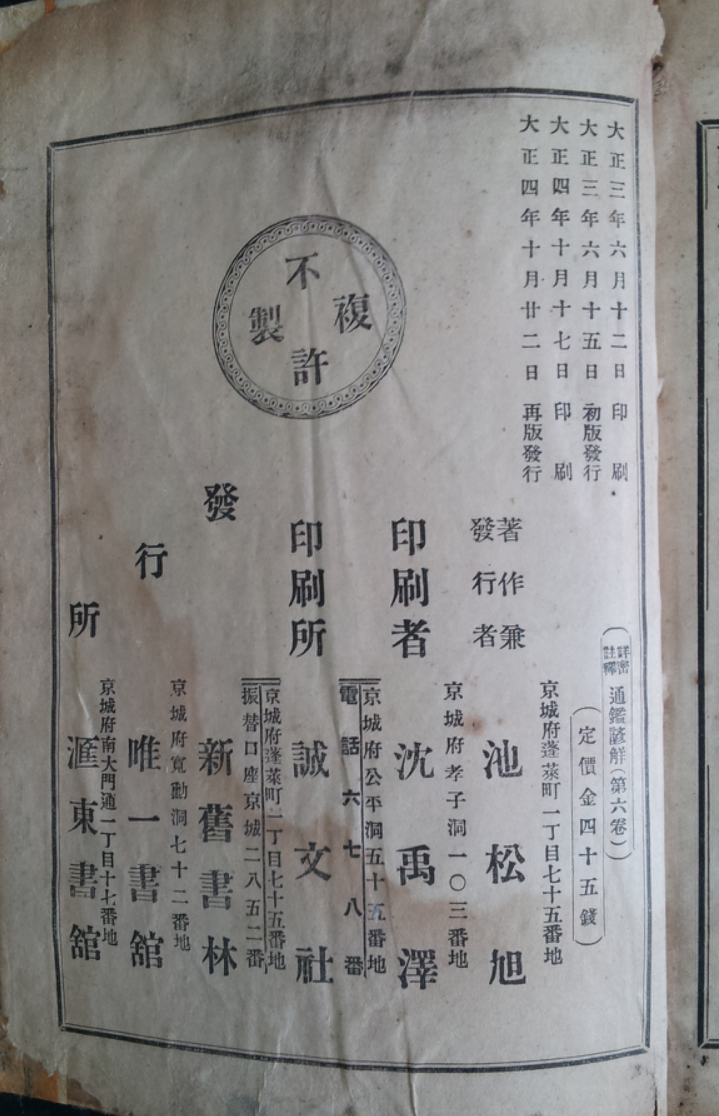 大正三年六月十二日印刷
大正三年六月十五日初版發行
大正四年十月十七日印刷
大正四年十月廿二日再版發行
不許複製
詳密註釋 通鑑諺解(第六卷)
定價金四十五錢
京城府蓬萊町一丁目七十五番地
著作兼
發行者
池松旭
京城府孝子洞一〇三番地
印刷者 沈禹澤
京城府公平洞五十五番地
電話六七八番
印刷所 誠文社
京城府蓬萊町一丁目七十五番地
振替口座京城二八五二番
發行所
新舊書林
京城府寬勳洞七十二番地
唯一書舘
京城府南大門通一丁目十七番地
滙東書舘